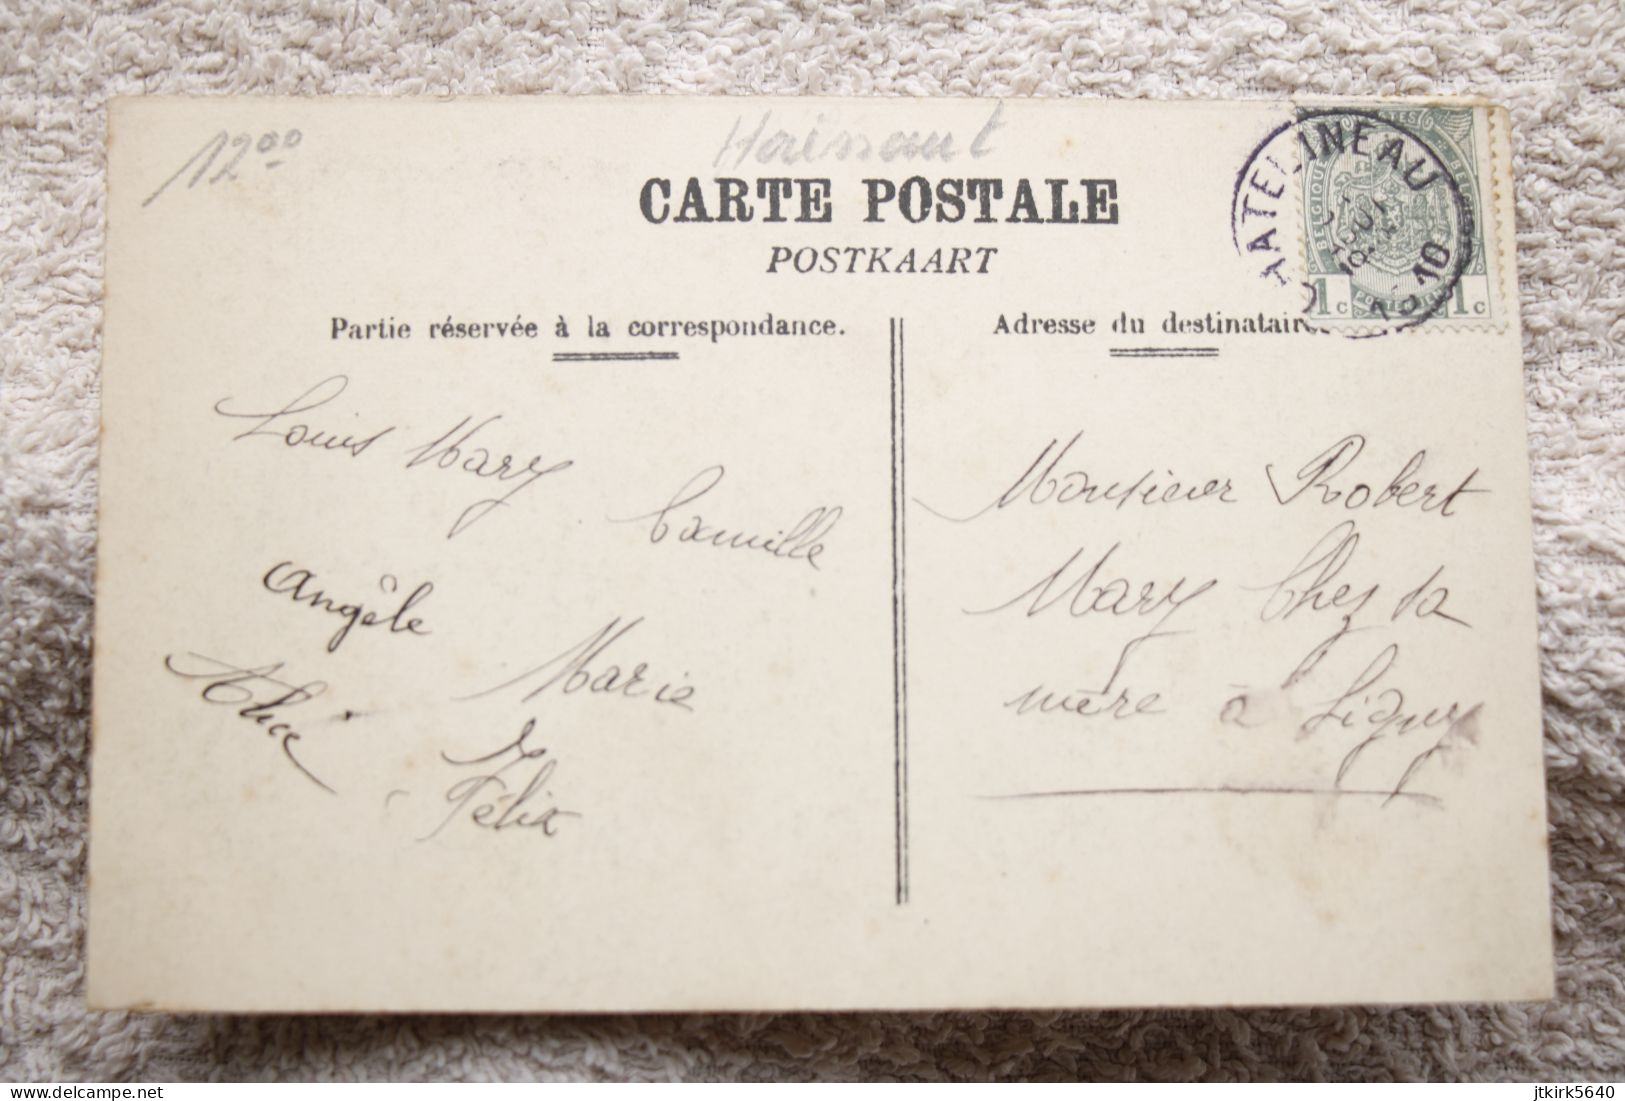 12⁰⁰
Hainaut
CARTE POSTALE
POSTKAART
CHATELINEAU
1910
BELGIQUE
BELGIË
1 c POSTERIJEN 1 c
Partie réservée à la correspondance.
Louis Mary
Camille
Angèle
Marie
Alice
Félix
Adresse du destinataire
Monsieur Robert
Mary Chez sa
mère à Ligny
www.delcampe.net
jtkirk5640